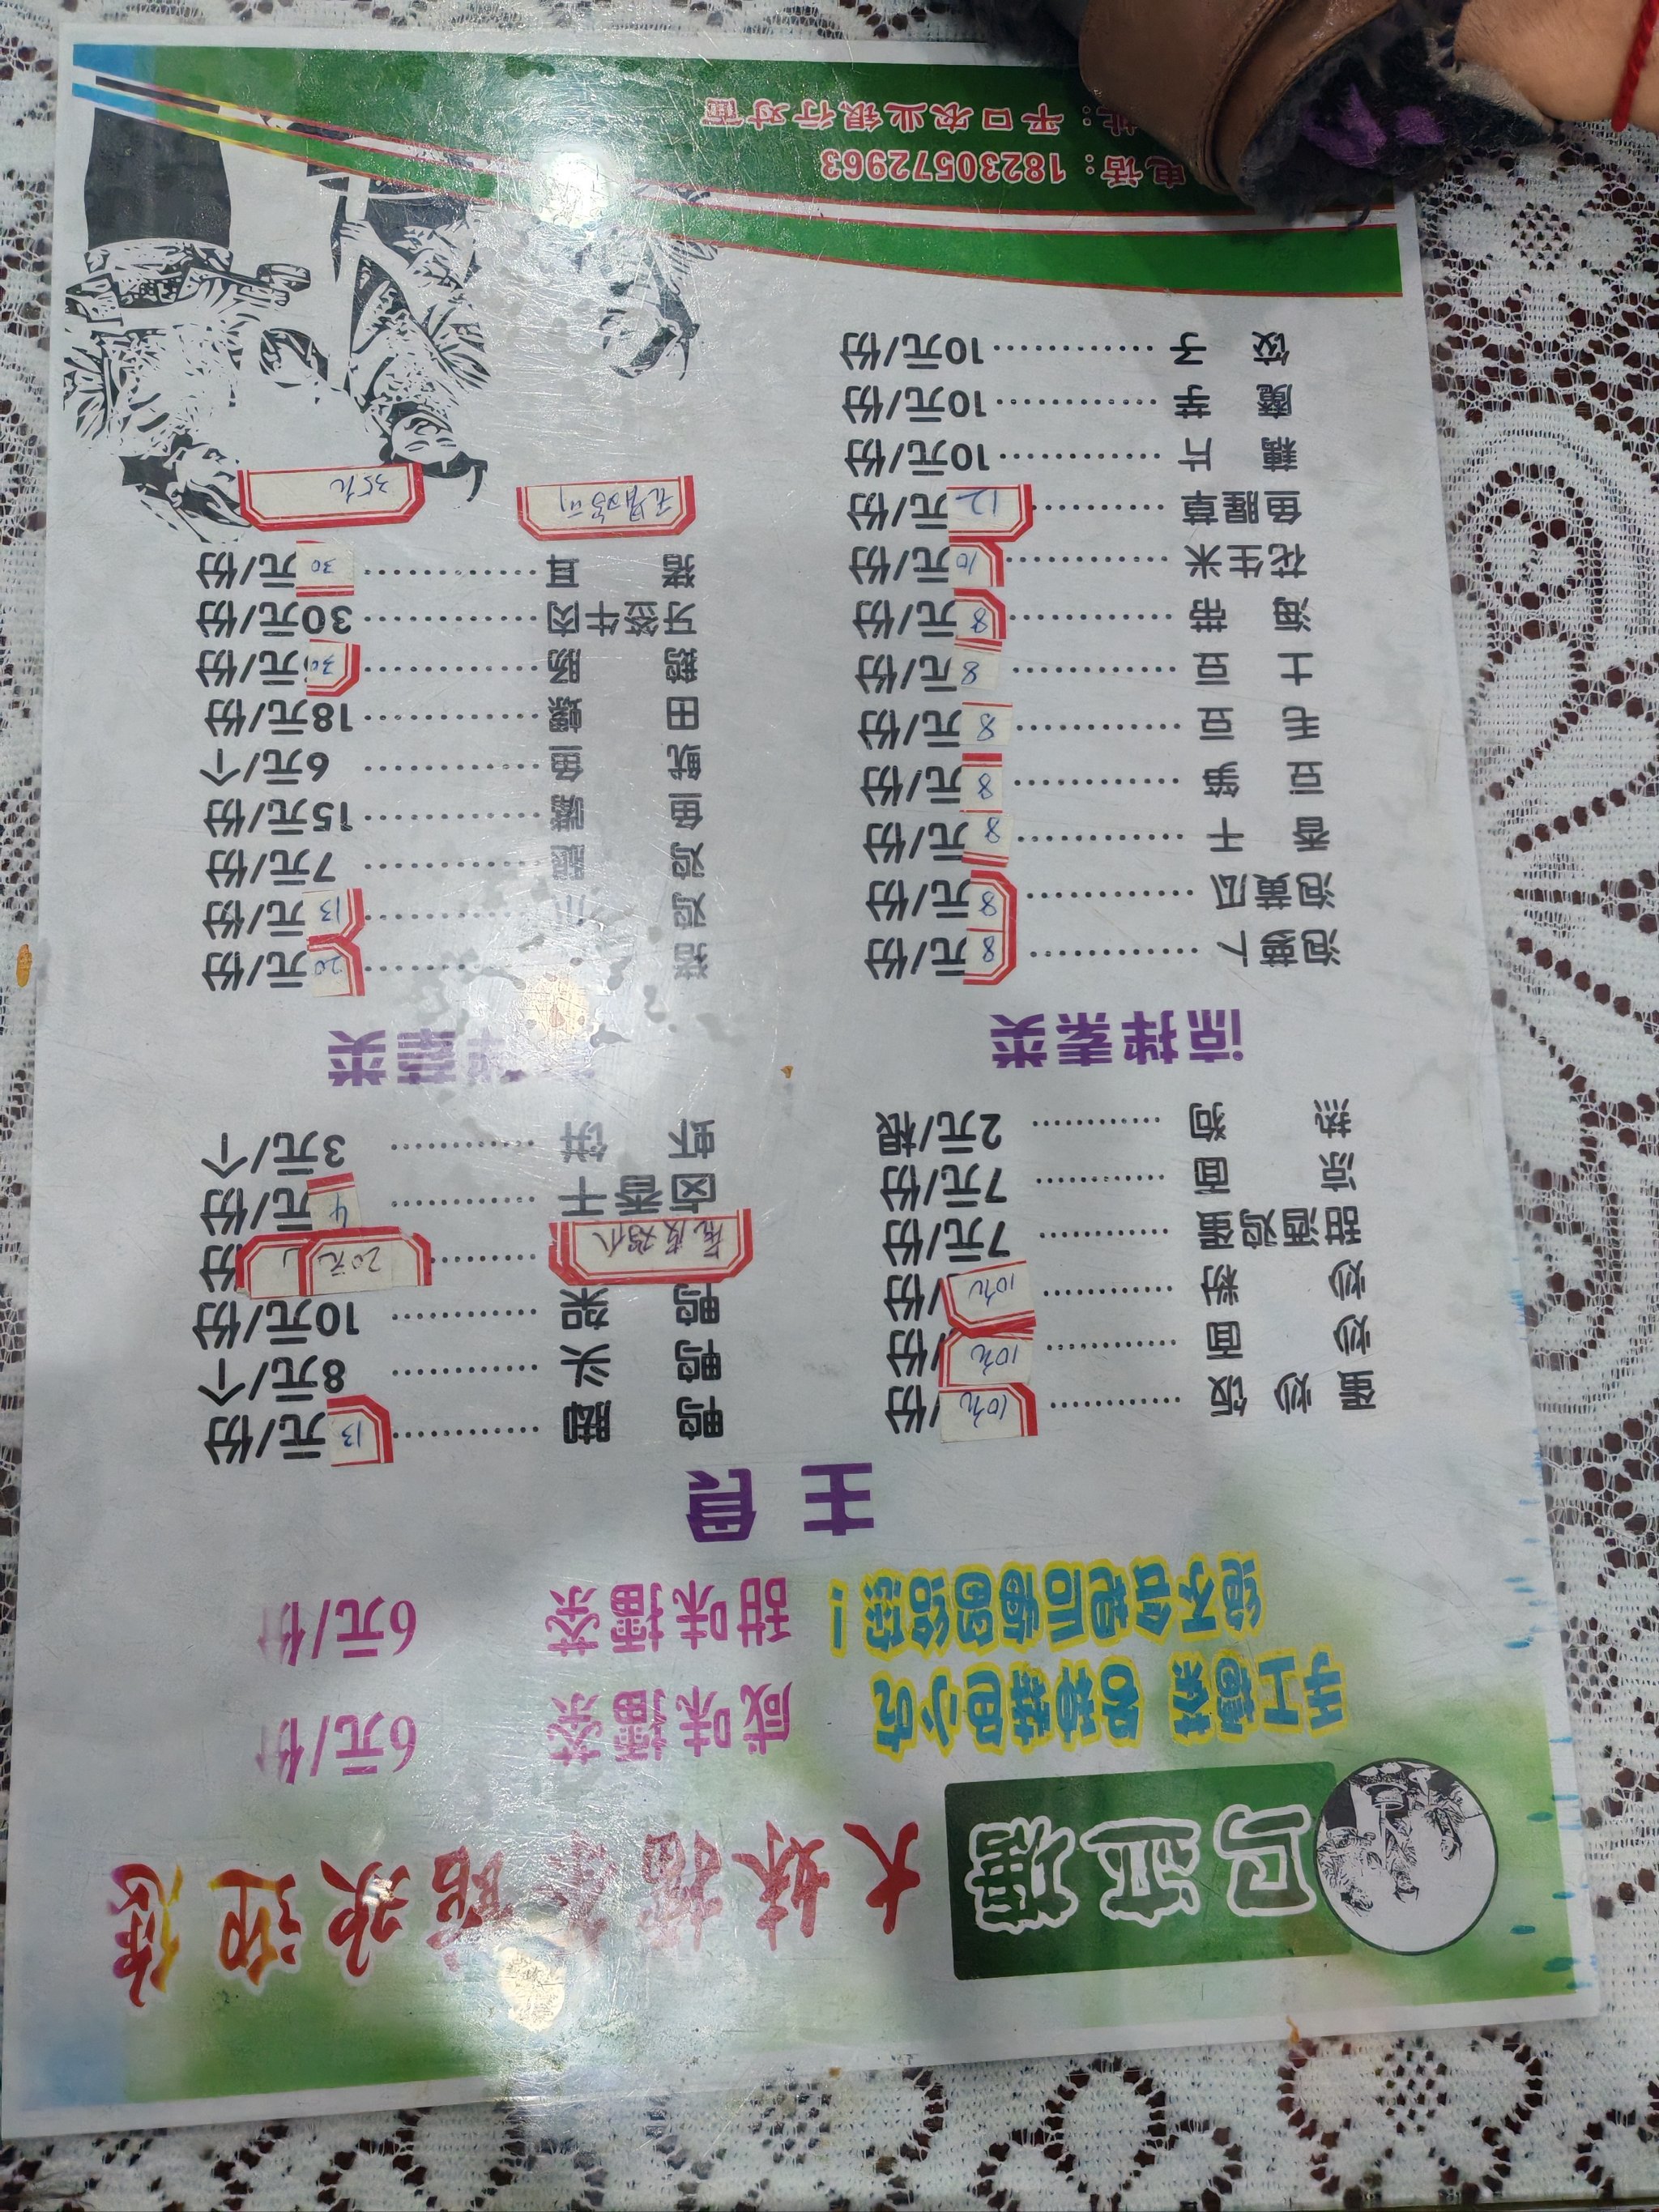 马迹塘 大妹擂茶馆欢迎您
手工擂茶 各种特色小吃
绝不会把后悔留给您！
咸味擂茶 6元/份
甜味擂茶 6元/份
主食
蛋炒饭············10元/份
炒面············10元/份
炒粉············10元/份
甜酒鸡蛋············7元/份
凉面············7元/份
热狗············2元/根
鸭脚············13元/份
鸭头············8元/个
鸭架············10元/份
虎皮鸡爪············20元/份
卤香干············4元/份
虾饼············3元/个
凉拌素类
泡萝卜············8元/份
泡黄瓜············8元/份
香干············8元/份
豆笋············8元/份
毛豆············8元/份
土豆············8元/份
海带············8元/份
花生米············10元/份
鱼腥草············12元/份
藕片············10元/份
魔芋············10元/份
饺子············10元/份
荤类
猪············20元/份
鸡爪············13元/份
鸡腿············7元/份
鱼嘴············15元/份
鱿鱼············6元/个
田螺············18元/份
鹅肠············30元/份
牙签牛肉············30元/份
猪耳············30元/份
无骨鸡爪 35元
电话：18230572963
址：平口农业银行对面